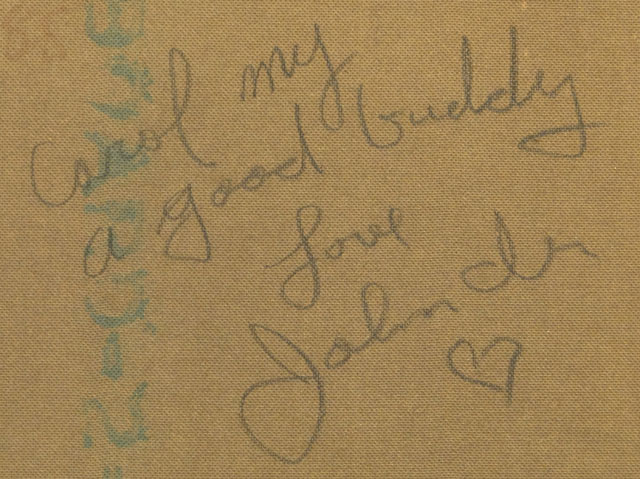 Carol my
a good buddy
love
John